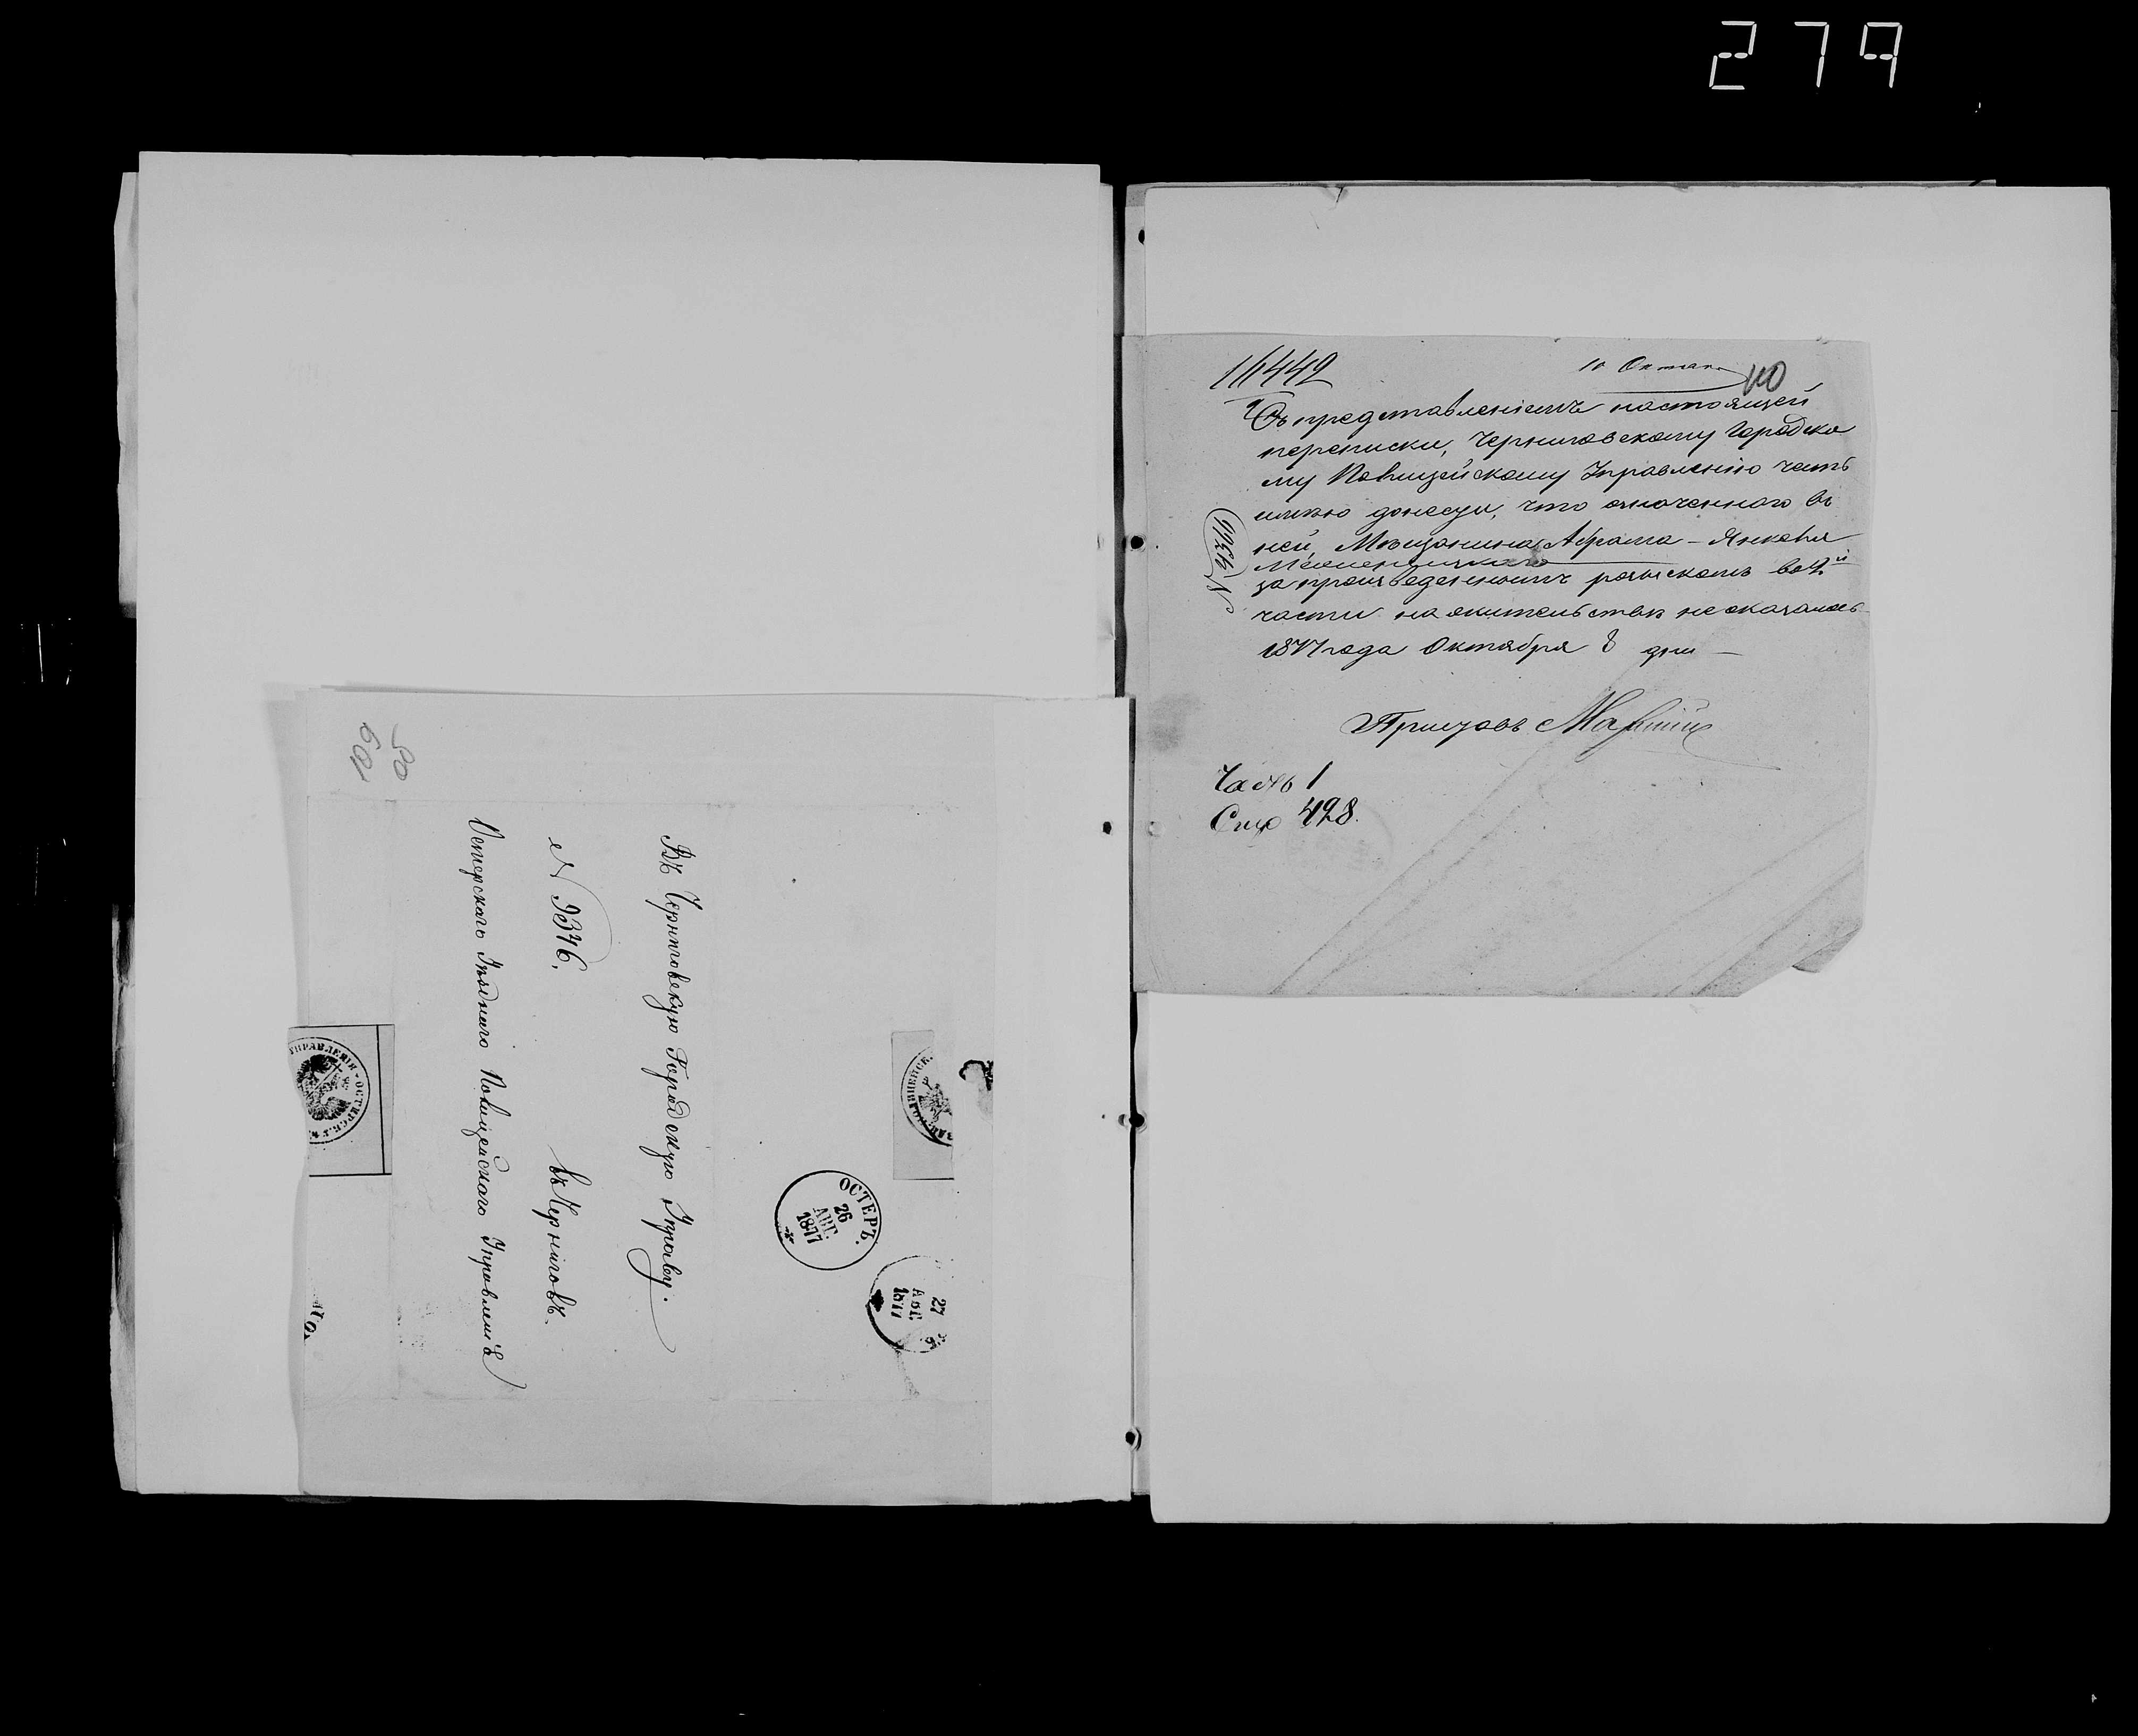 279
109
50
Въ Черниговскую Городскую Управу.
N 9376.
въ Черниговъ.
Остерскаго Уѣзднаго Полицейскаго Управленія
УПРАВЛЕНІЯ · ОСТЕРСКА
ОСТЕРЪ.
26
АВГ.
1877
27
АВГ
1877
16442
10 Октяб
110
Съ представленіемъ настоящей
переписки, Черниговскому Городско
му Полицейскому Управленію честь
имѣю донести, что означеннаго въ
ней, Мѣщанина Абрама – Янкеля
за произведеннымъ розыскомъ во 2й
части на жительствѣ не оказалось
1877 года Октября 8 дня –
Приставъ
Часть 1
428.